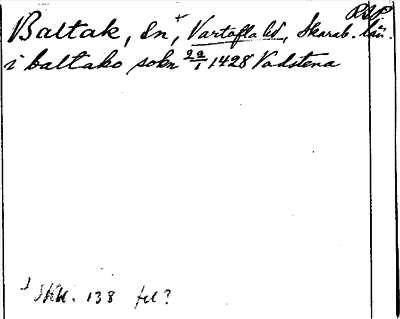 RAP
Baltak, Sn, Vartofta hd, Skarab. län.
i baltako sokn 22/1 1428 Vadstena
138 fel?